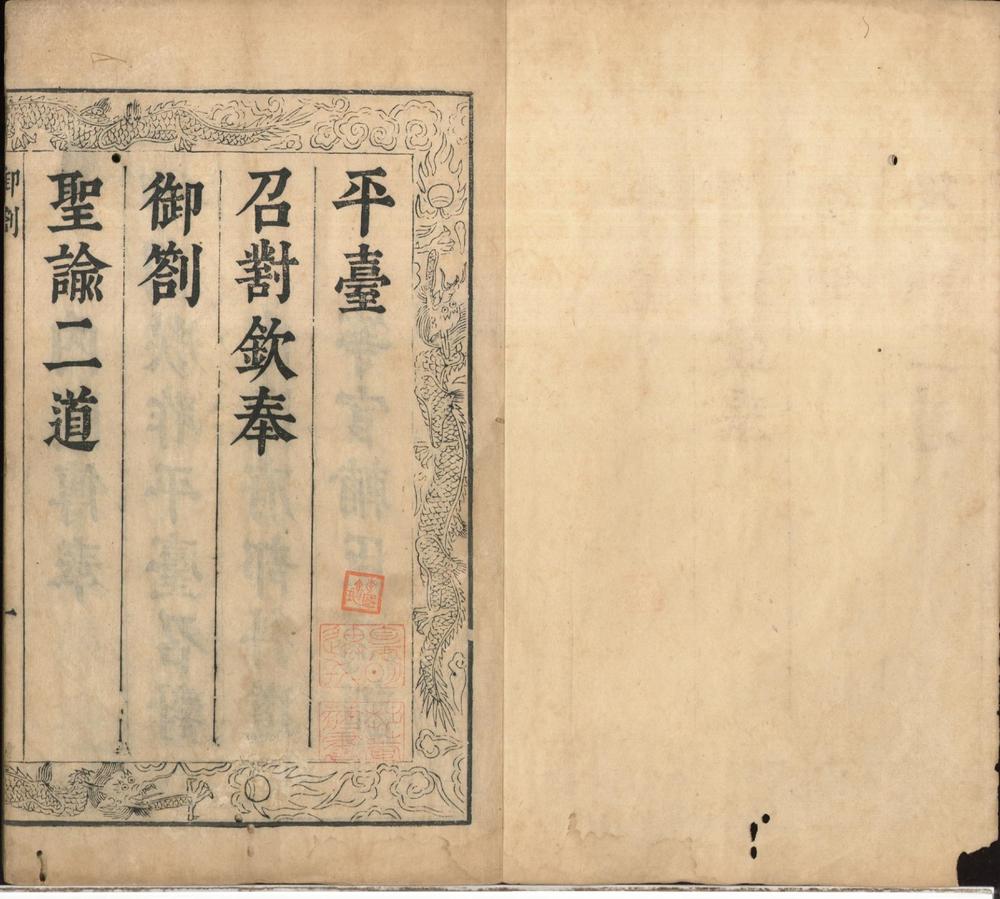 平臺
召對欽奉
御劄
聖諭二道
御劄
一